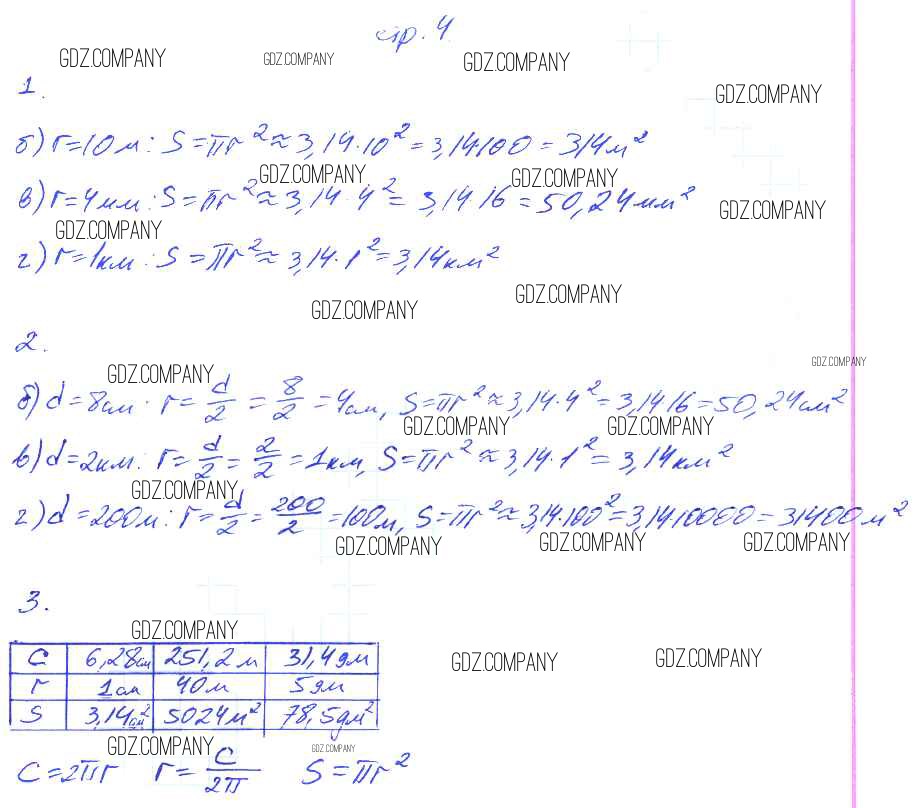 стр. 4.
GDZ.COMPANY GDZ.COMPANY GDZ.COMPANY
1.
GDZ.COMPANY
б) r=10м: S=πr²≈3,14·10²=3,14·100=314м²
GDZ.COMPANY GDZ.COMPANY
в) r=4мм: S=πr²≈3,14·4²=3,14·16=50,24мм²
GDZ.COMPANY GDZ.COMPANY
г) r=1км: S=πr²≈3,14·1²=3,14км²
GDZ.COMPANY GDZ.COMPANY
2.
GDZ.COMPANY GDZ.COMPANY
б) d=8см: r=d/2=8/2=4см, S=πr²≈3,14·4²=3,14·16=50,24см²
GDZ.COMPANY GDZ.COMPANY
в) d=2км: r=d/2=2/2=1км, S=πr²≈3,14·1²=3,14км²
GDZ.COMPANY
г) d=200м: r=d/2=200/2=100м, S=πr²≈3,14·100²=3,14·10000=31400м²
GDZ.COMPANY GDZ.COMPANY GDZ.COMPANY
3.
GDZ.COMPANY
C 6,28см 251,2м 31,4дм
GDZ.COMPANY GDZ.COMPANY
r 1см 40м 5дм
S 3,14см² 5024м² 78,5дм²
GDZ.COMPANY GDZ.COMPANY
C=2πr r=C/2π S=πr²